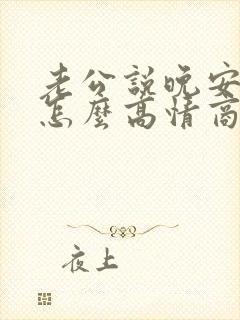 老公說晚安
怎麼高情商
夜上